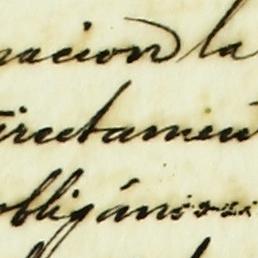 nacion la
irectamen
obligán